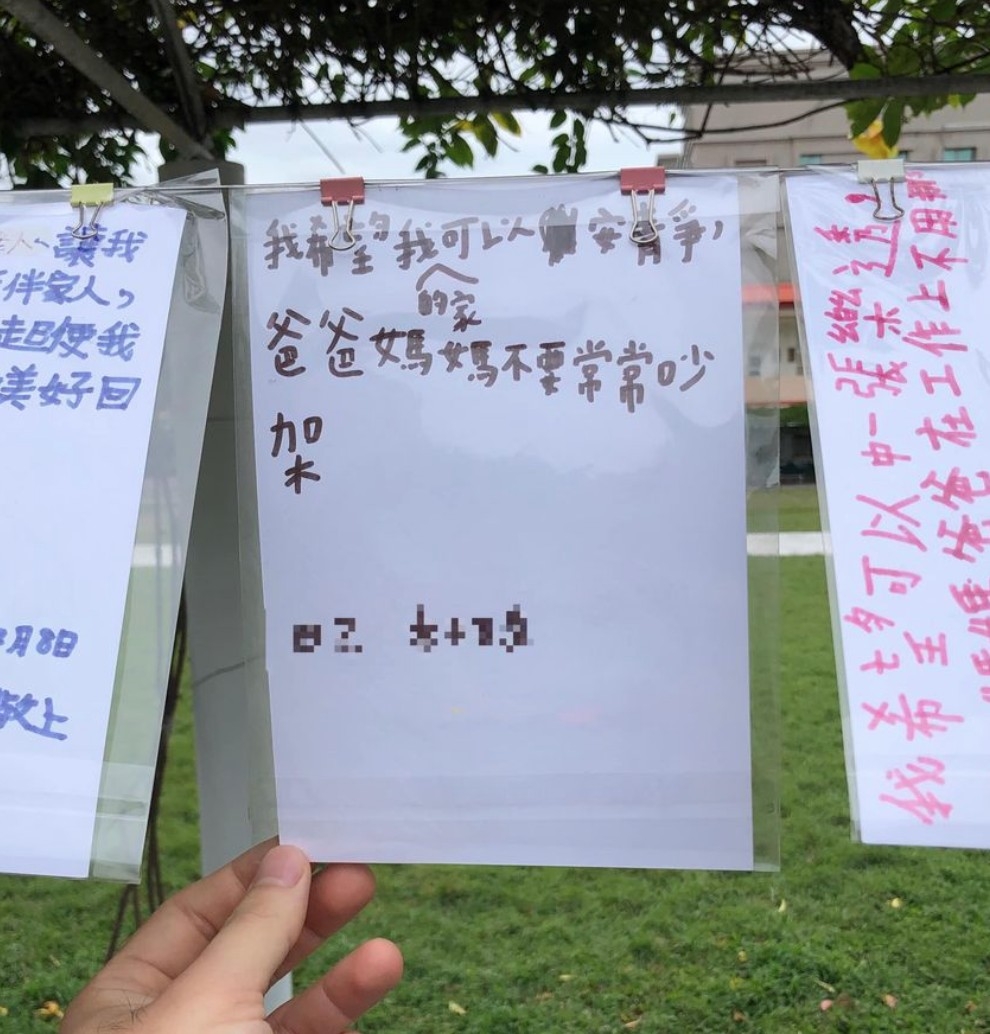 讓我
伴家人，
起便我
美好回
月8日
敬上
我希望我的家可以安靜，
爸爸媽媽不要常常吵
架
我希望可以中一張樂透，
爸爸在工作上不用